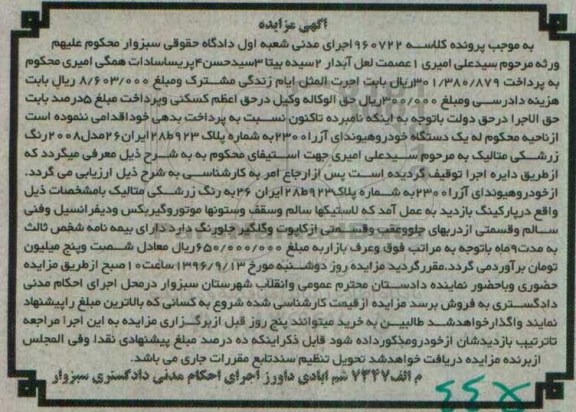 آگهی مزایده
به موجب پرونده کلاسه ۹۶۰۷۲۲ اجرای مدنی شعبه اول دادگاه حقوقی سبزوار محکوم علیهم
ورثه مرحوم سیدعلی امیری ۱عصمت لعل آبدار ۲سیده بیتا ۳سیدحسن۴پریساسادات همگی امیری محکوم
به پرداخت ۳۰۱/۳۸۰/۸۷۹ریال بابت اجرت المثل ایام زندگی مشترک ومبلغ ۸/۶۰۳/۰۰۰ ریال بابت
هزینه دادرسی ومبلغ ۳۰۰/۰۰۰ریال حق الوکاله وکیل درحق اعظم کسکنی وپرداخت مبلغ ۵درصد بابت
حق الاجرا درحق دولت باتوجه به اینکه نامبرده تاکنون نسبت به پرداخت بدهی خوداقدامی ننموده است
ازناحیه محکوم له یک دستگاه خودروهیوندای آزرا۲۳۰۰به شماره پلاک ۹۲۳ط۲۸ایران۲۶مدل۲۰۰۸رنگ
زرشکی متالیک به مرحوم سیدعلی امیری جهت استیفای محکوم به به شرح ذیل معرفی میگردد که
ازطریق دایره اجرا توقیف گردیده است پس ازارجاع امر به کارشناسی به شرح ذیل ارزیابی می گردد.
ازخودروهیوندای آزرا۲۳۰۰به شماره پلاک۹۲۳ط۲۸ ایران ۲۶به رنگ زرشکی متالیک بامشخصات ذیل
واقع درپارکینگ بازدید به عمل آمد که لاستیکها سالم وسقف وستونها موتوروگیربکس ودیفرانسیل وفنی
سالم وقسمتی ازدربهای جلووعقب وقسمتی ازکاپوت وگلگیر جلورنگ دارد دارای بیمه نامه شخص ثالث
به مدت۹ماه باتوجه به مراتب فوق وعرف بازاربه مبلغ ۶۵۰/۰۰۰/۰۰۰ریال معادل شصت وپنج میلیون
تومان برآوردمی گردد.مقررگردید مزایده روز دوشنبه مورخ ۱۳۹۶/۹/۱۳ساعت۱۰ صبح ازطریق مزایده
حضوری وباحضور نماینده دادستان محترم عمومی وانقلاب شهرستان سبزوار درمحل اجرای احکام مدنی
دادگستری به فروش برسد مزایده ازقیمت کارشناسی شده شروع به کسانی که بالاترین مبلغ راپیشنهاد
نمایند واگذارخواهدشد طالبین به خرید میتوانند پنج روز قبل ازبرگزاری مزایده به این اجرا مراجعه
تاترتیب بازدیدشان ازخودرومذکورداده شود قابل ذکراینکه ده درصد مبلغ پیشنهادی نقدا وفی المجلس
ازبرنده مزایده دریافت خواهدشد تحویل تنظیم سندتابع مقررات جاری می باشد.
م الف۷۳۴۷ شم آبادی داورز اجرای احکام مدنی دادگستری سبزوار